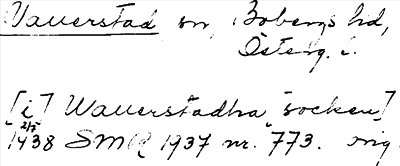 Vauerstad sn, Bobergs hd,
Österg. l.
[i] Wauerstadha "socken]
2/5
1438 SMR 1937 nr. 773. orig.